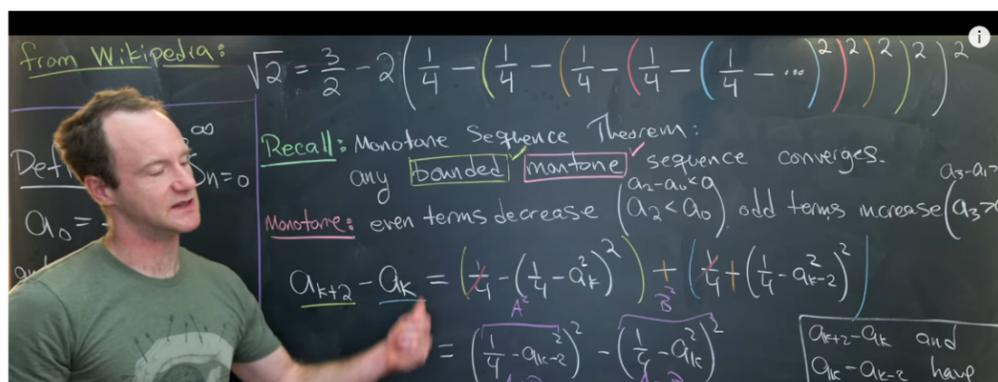 from Wikipedia:
√2 = 3/2 - 2(1/4 - (1/4 - (1/4 - (1/4 - (1/4 - ...)²)²)²)²)²
Recall: Monotone Sequence Theorem:
any bounded montone sequence converges.
∞
n=0
a₀ =
Monotone: even terms decrease (a₂-a₀<0 a₂<a₀) odd terms increase
aₖ₊₂ - aₖ = (1/4 - (1/4 - a²ₖ)²) + (1/4 + (1/4 - a²ₖ₋₂)²)
A² B²
= (1/4 - a²ₖ₋₂)² - (1/4 - a²ₖ)²
aₖ₊₂-aₖ and
aₖ-aₖ₋₂ have